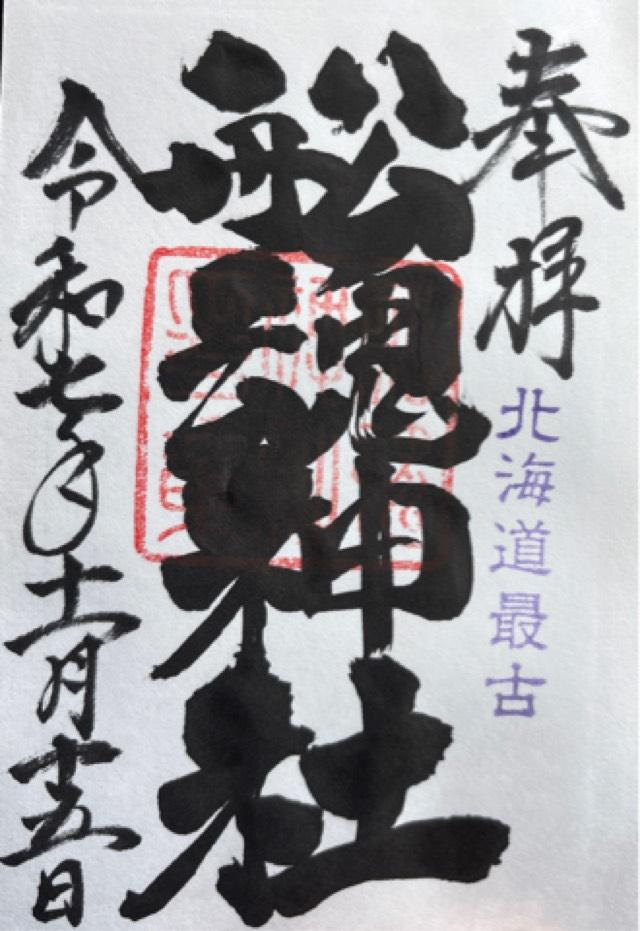 奉拝
北海道最古
船魂神社
令和七年十一月十五日